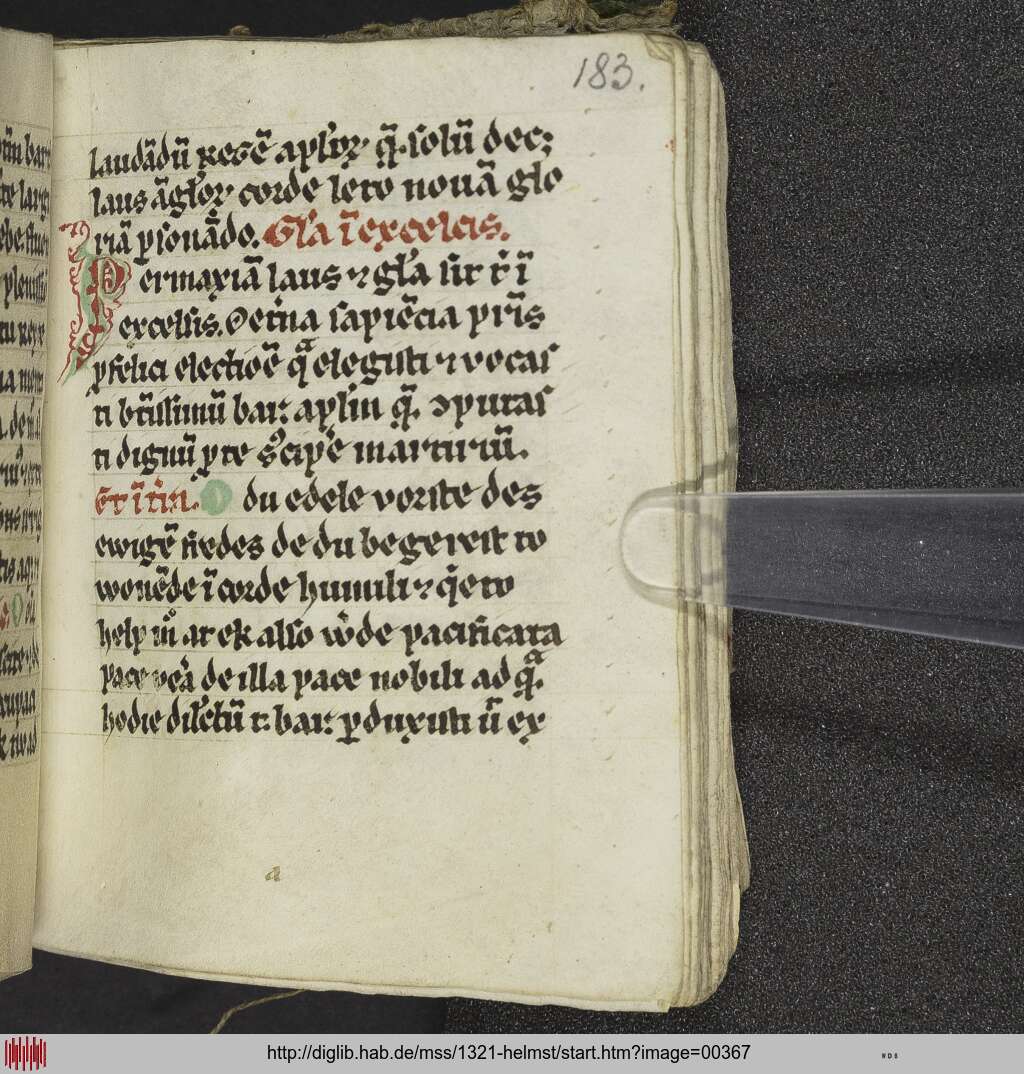 183.
laudādū regē aplōꝝ q̄. solū dec;
laus āglōꝝ corde leto nouā glo
riā ꝑsonādo. Gl'a ī excelcis.
Per maxīa laus ⁊ gl'a sit t' ī
excelsis. O et'na sapiēcia pr̄is
ꝑ felici electiōē qͣ elegisti ⁊ vocas
ti bt̄issimū bar: apl'm q̄. ꝯputas
ti dignū ꝑ te suscip̄e martiriū.
Et ī t'ra. O du edele vorste des
ewigē vredes de du begerest to
wonēde ī corde humili ⁊ q'eto
help m' at ek also w'de pacificata
pace vēa de illa pace nobili ad qͣ.
hodie dil'ctū t: bar: ꝑduxisti ū ex
a
http://diglib.hab.de/mss/1321-helmst/start.htm?image=00367